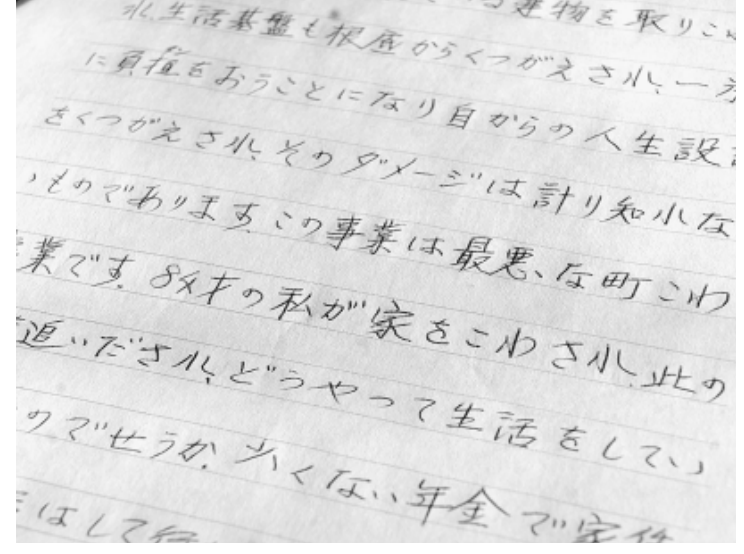 建物を取りこわ
れ、生活基盤も根底からくつがえされ、一方
に負担をおうことになり自からの人生設計
をくつがえされ、そのダメージは計り知れな
いものであります。この事業は最悪、な町こわ
業です。84才の私が家をこわされ、此の
追いだされ、どうやって生活をしてい
のでせうか。少くない年金で家
はして